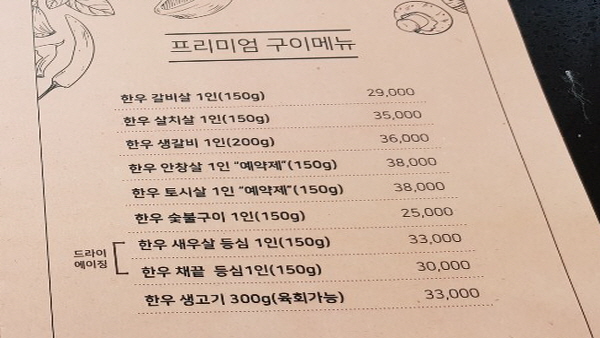 프리미엄 구이메뉴
한우 갈비살 1인(150g) 29,000
한우 살치살 1인(150g) 35,000
한우 생갈비 1인(200g) 36,000
한우 안창살 1인 “예약제”(150g) 38,000
한우 토시살 1인 “예약제”(150g) 38,000
한우 숯불구이 1인(150g) 25,000
드라이
에이징
한우 새우살 등심 1인(150g) 33,000
한우 채끝 등심1인(150g) 30,000
한우 생고기 300g(육회가능) 33,000